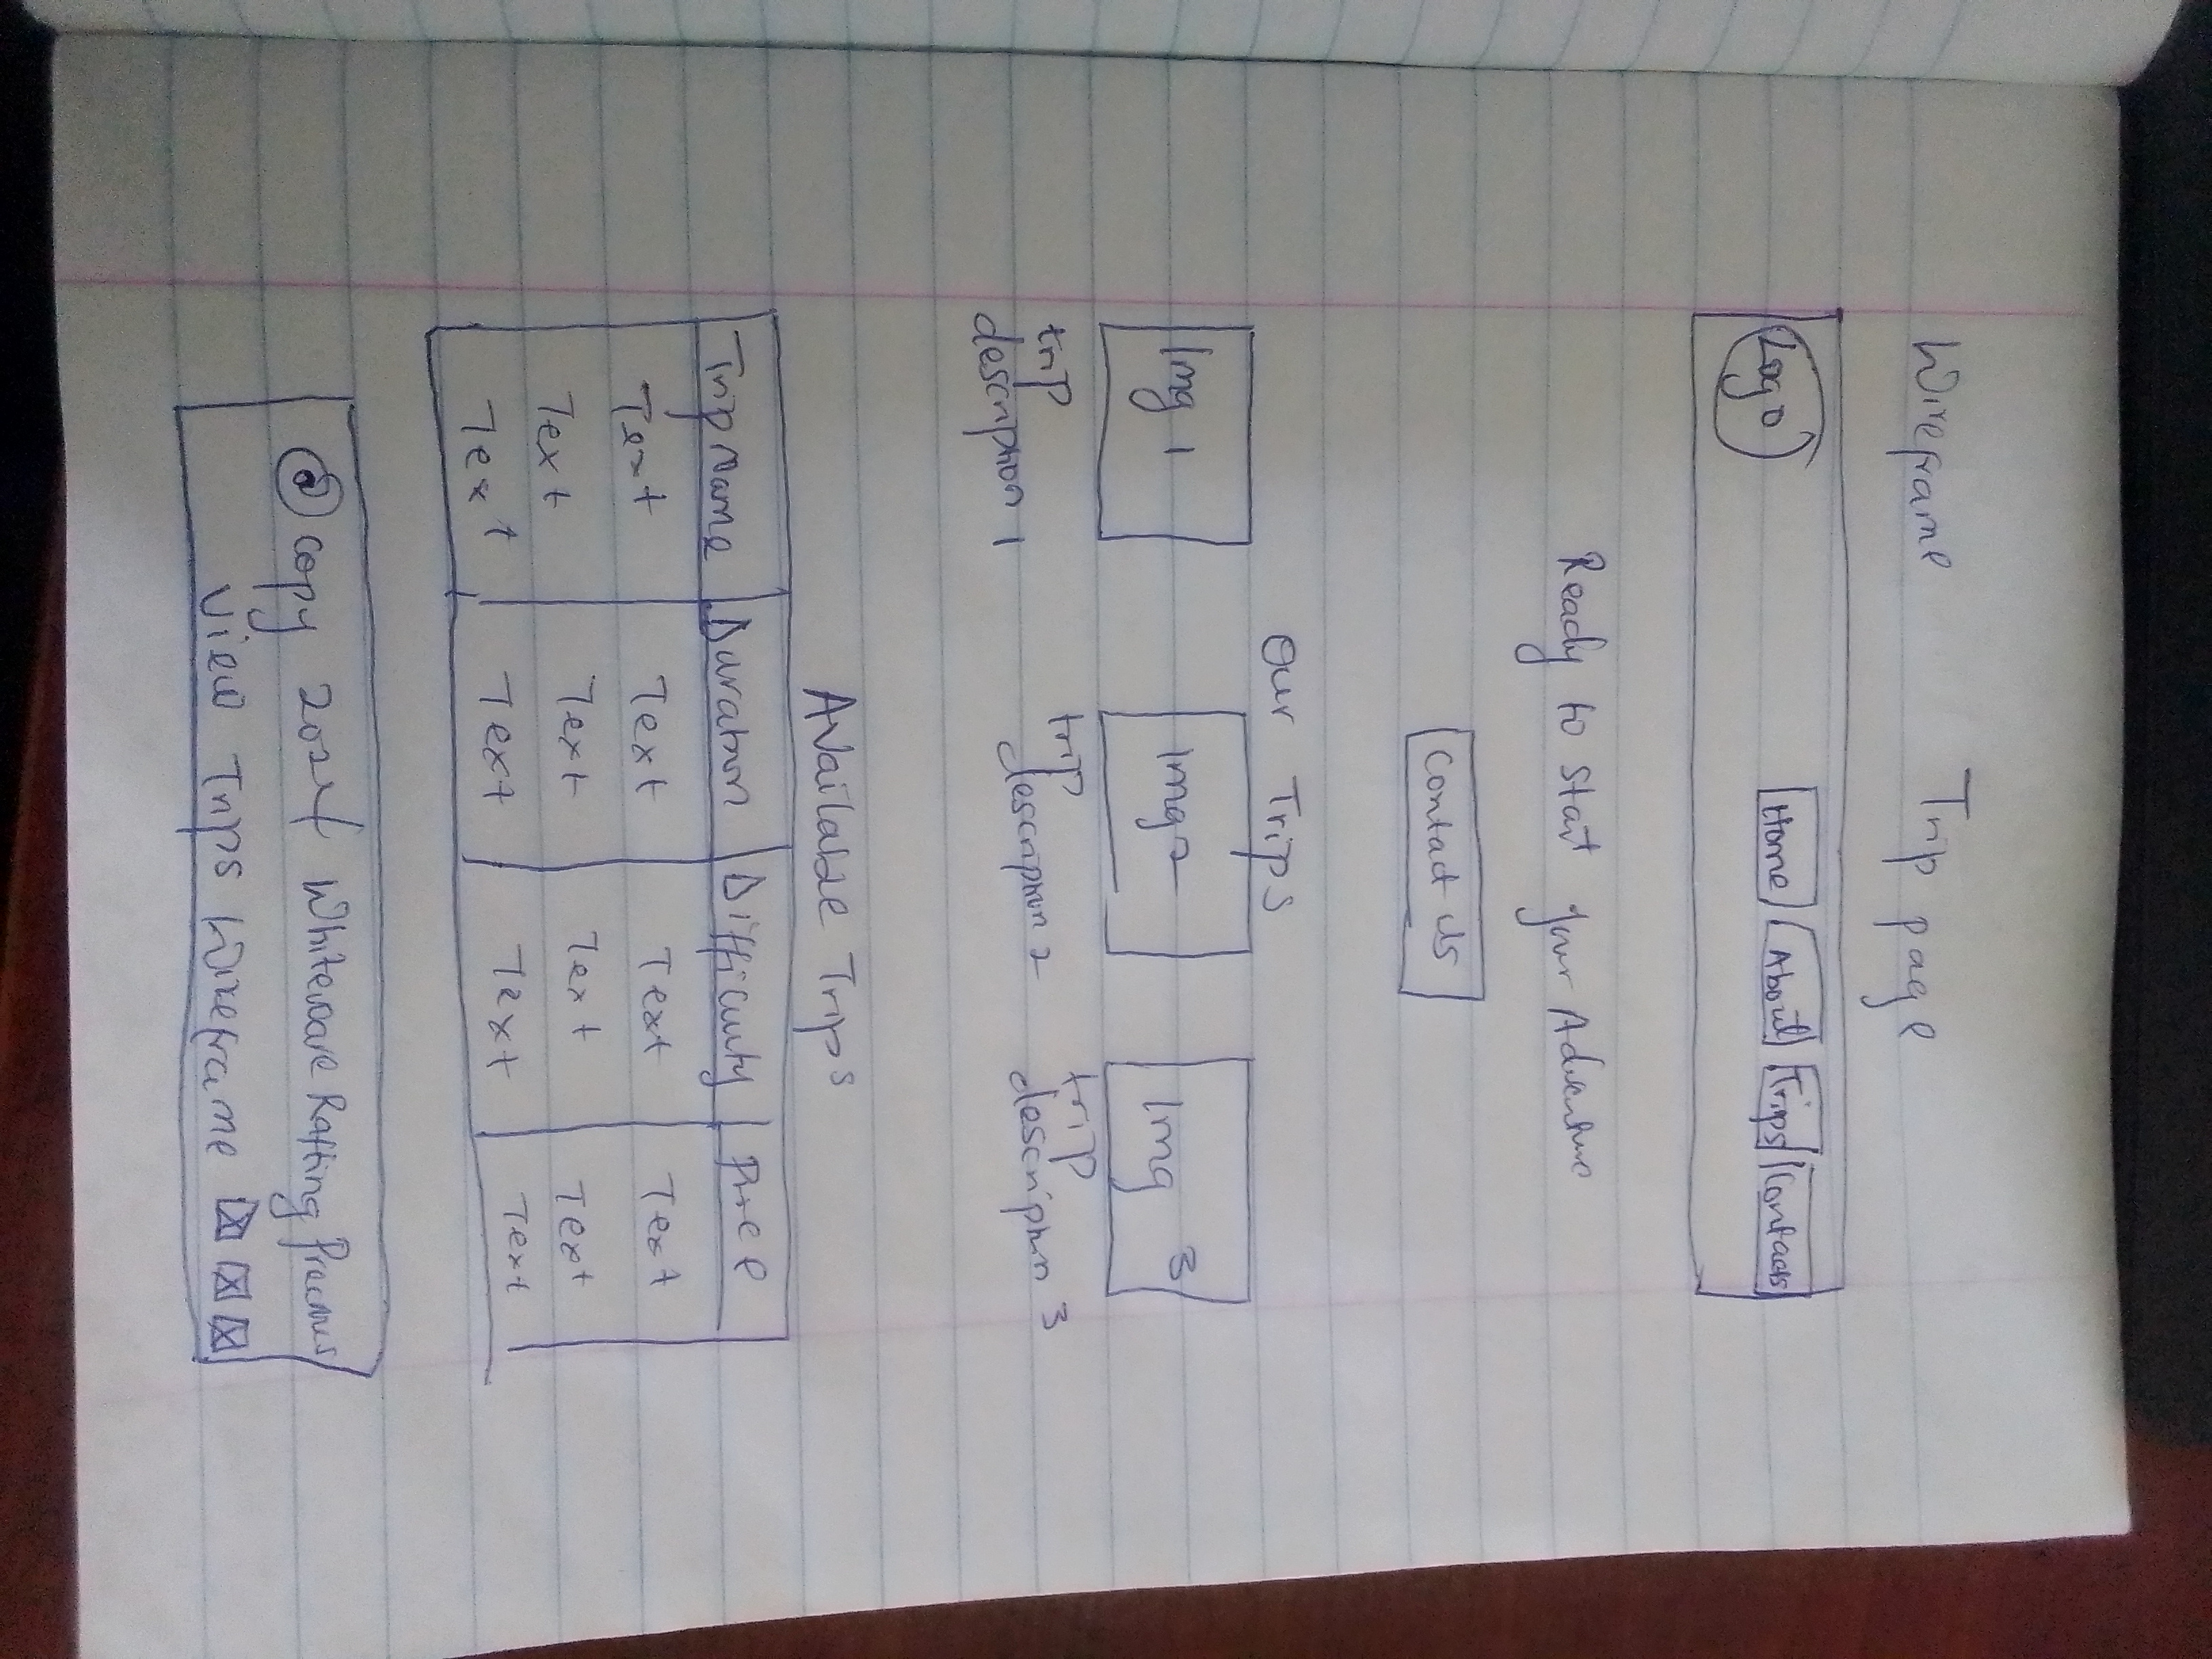 Wireframe Trip page
Logo Home About Trips Contacts
Ready to start your Adventure
Contact us
Our Trips
Img 1 Img 2 Img 3
trip description 1 trip description 2 trip description 3
Available Trips
Trip Name Duration Difficulty Price
Text Text Text Text
Text Text Text Text
Text Text Text Text
© copy 2024 Rafting
View Trips Wireframe